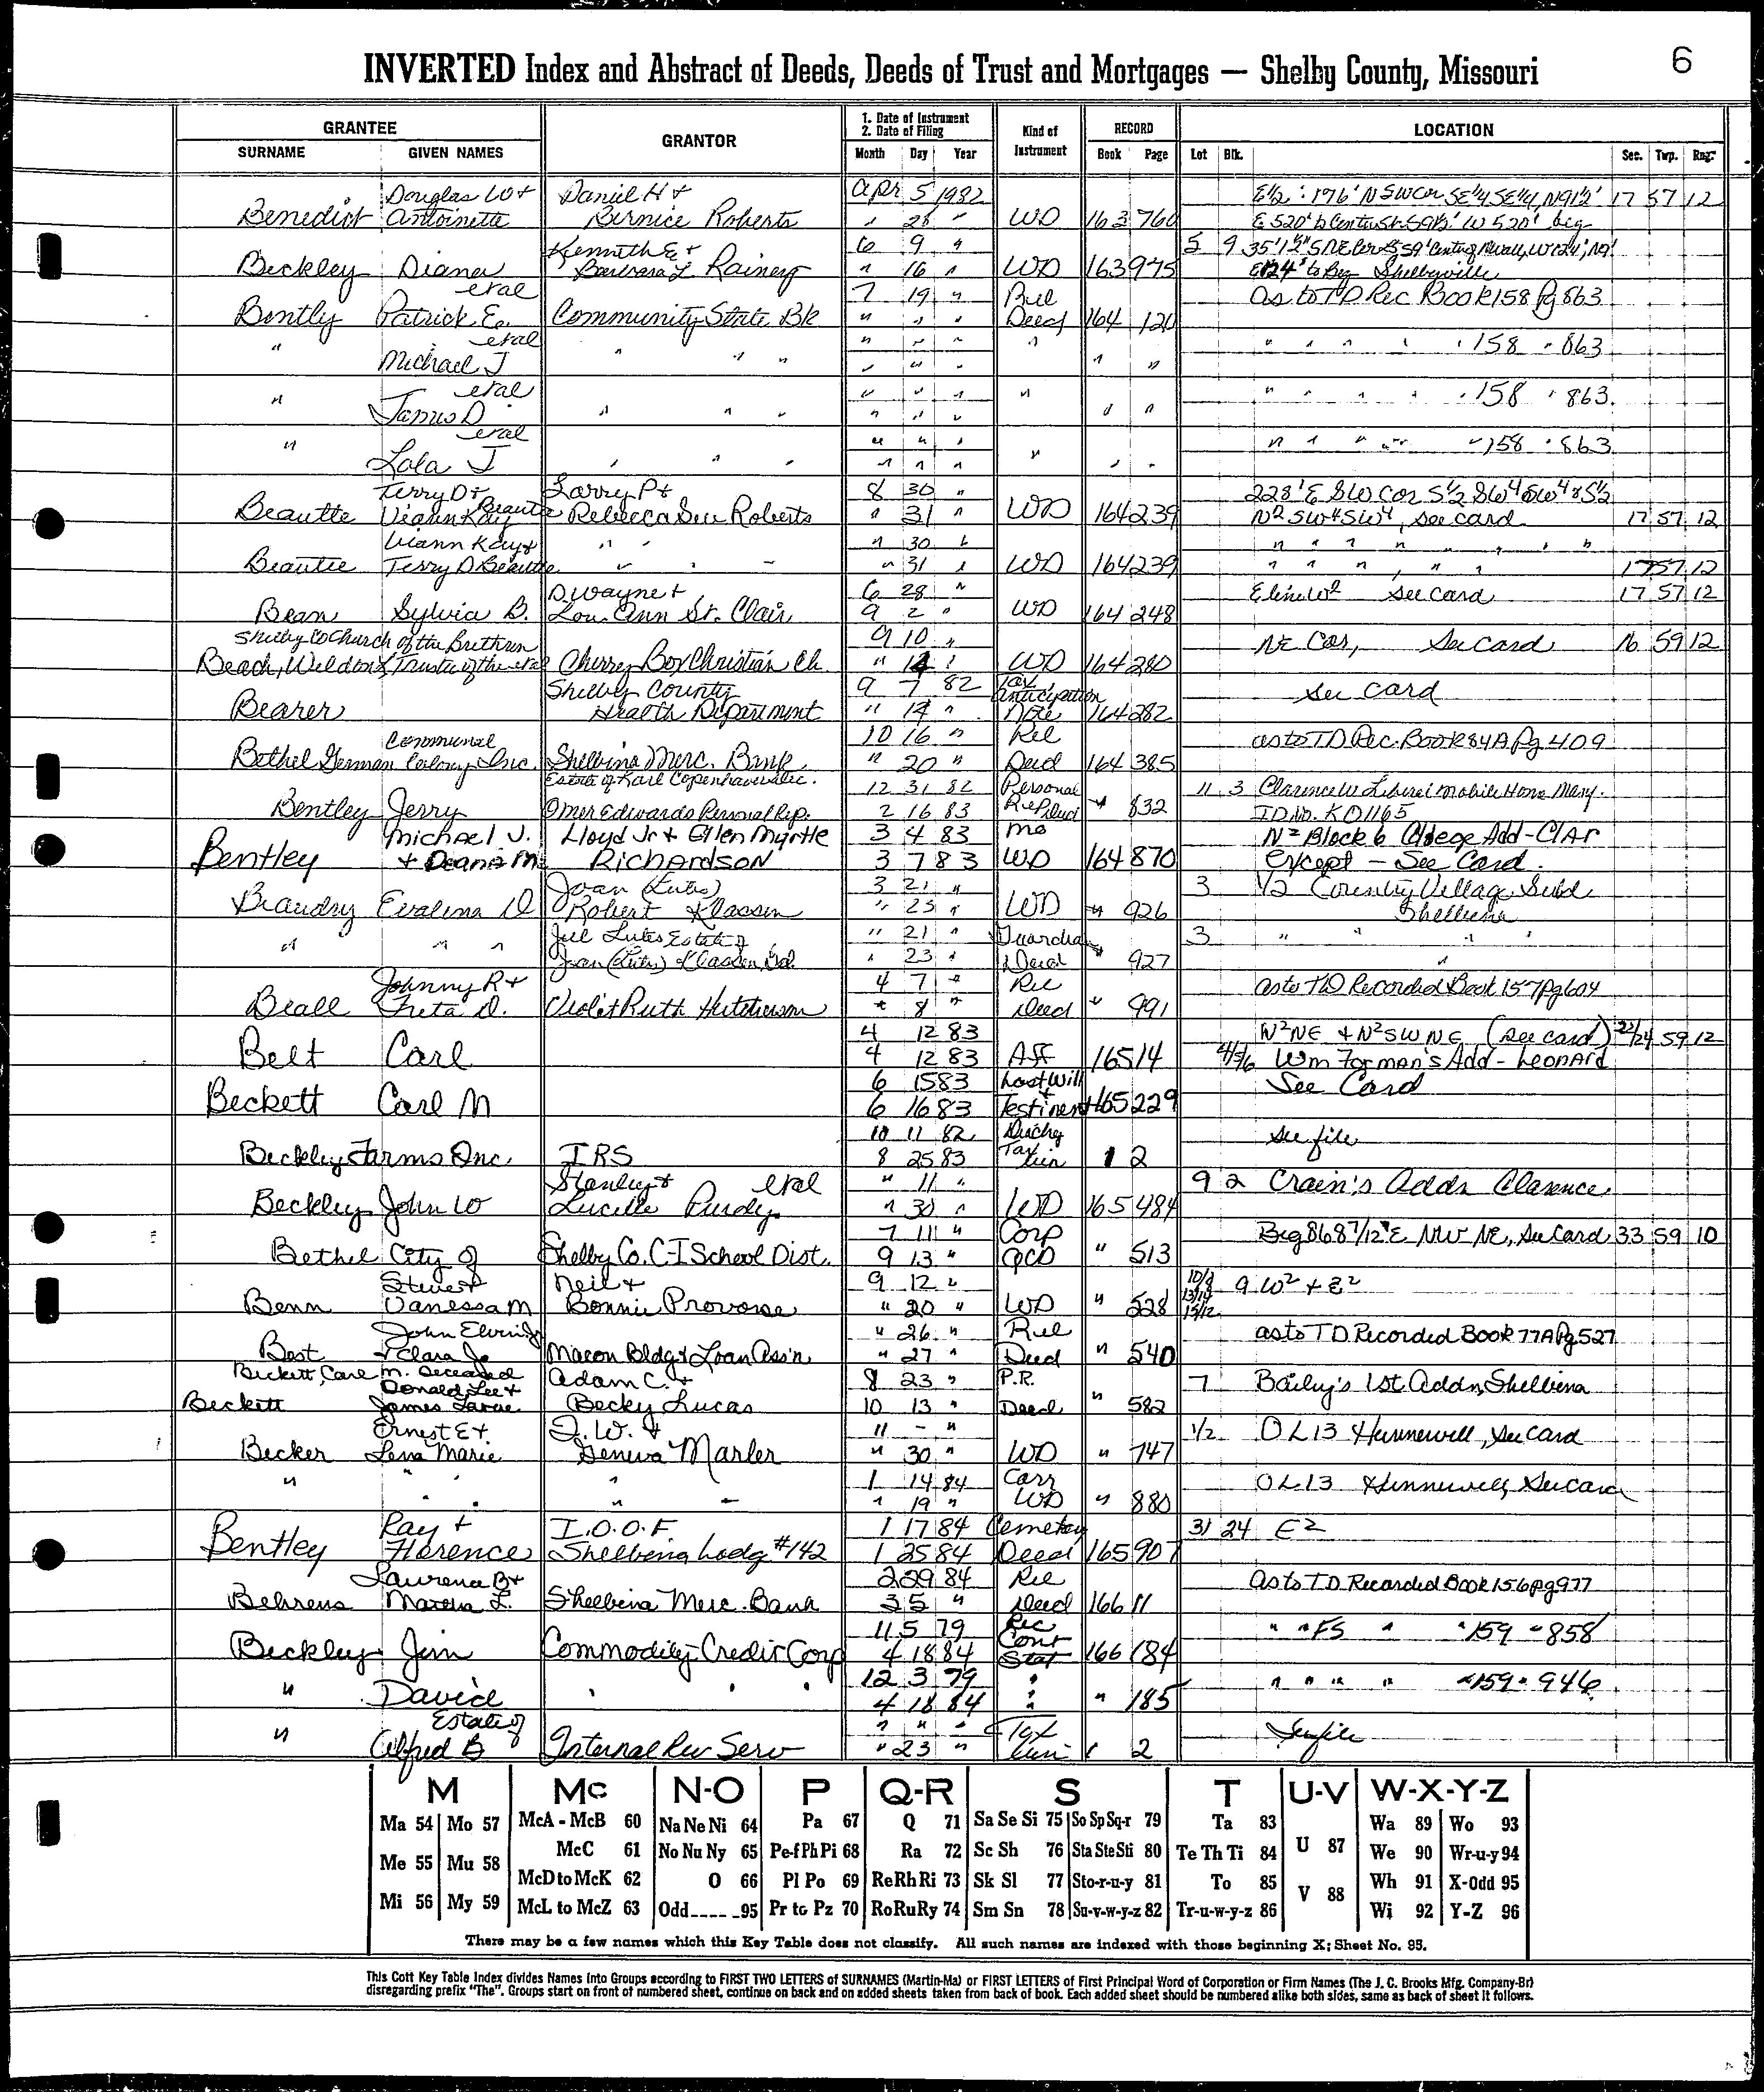 INVERTED Index and Abstract of Deeds, Deeds of Trust and Mortgages — Shelby County, Missouri 6
GRANTEE GRANTOR 1. Date of Instrument 2. Date of Filing Kind of Instrument RECORD LOCATION
SURNAME GIVEN NAMES Month Day Year Book Page Lot Blk. Sec. Twp. Rng.
Douglas W + Daniel H + Apr 5 1982 E½ : 176' N SW Cor SE¼ SE¼, N 91½' 17 57 12
Benedict Antoinette Bernice Roberts " 28 " WD 163 760 E 520' to Center St. S 91½' W 520' beg
Kenneth E + 6 9 " 5 9 35' 1½" S NE Cor
Beckley Diana Barbara L Rainey " 16 " WD 163 975 E 124' to Beg Shelbyville
etal 7 19 " Rel as to TD Rec Book 158 Pg 863
Bently Patrick E. Community State Bk " " " Deed 164 120
etal " " " " " " " " " 158 " 863
" Michael J " " " " " " " "
etal " " " " " " " " 158 " 863
" James D " " " " " " " "
etal " " " " " " " " " 158 " 863
" Lola J " " " " " " " "
Terry D + Larry P + 8 30 " 228' E SW Cor S½ SW⁴ SW⁴ & S½
Beautte Viann Kay Beautte Rebecca Sue Roberts " 31 " WD 164 239 N² SW⁴ SW⁴, see card 17 57 12
Viann Kay + " " " 30 " " " " " " " " "
Beautte Terry D Beautte " " " " 31 " WD 164 239 " " " " " " 17 57 12
Dwayne + 6 28 " E line W² see card 17 57 12
Bean Sylvia B. Lou Ann St. Clair 9 2 " WD 164 248
Shelby Co Church of the Brethren 9 10 " NE Cor, See Card 16 59 12
Beach, Weldon, Trustee of the etal Cherry Box Christian Ch. " 14 " WD 164 280
Shelby County 9 7 82 Tax Anticipation see card
Bearer Health Department " 14 " Note 164 282
Communal 10 16 " Rel as to TD Rec. Book 84A Pg 409
Bethel German Colony Inc. Shelbina Merc. Bank " 20 " Deed 164 385
Estate of Karl Copenhaver dec. 12 31 82 Personal 11 3 Clarence W Liberei Mobile Home
Bentley Jerry Omer Edwards Personal Rep. 2 16 83 Rep Deed " 832 ID. No. KD1165
Michael J. Lloyd Jr + Ellen Myrtle 3 4 83 Mo N² Block 6 College Add - Clar
Bentley + Deana M. Richardson 3 7 83 WD 164 870 except - See Card.
Joan (Lutes) 3 21 " 3 1/2 Country Village Subd
Beaudry Evalena D Robert Klassen " 23 " WD " 926 Shelbina
Jill Lutes Estate of " 21 " Guardian 3 " " " "
" " " Joan (Lutes) Klassen, Gd. " 23 " Deed " 927 "
Johnny R + 4 7 " Rel as to TD Recorded Book 157 Pg 604
Beall Freta D. Violet Ruth Hutcherson " 8 " Deed " 991
4 12 83 N² NE + N² SW NE (see card) 23/24 59 12
Belt Carl 4 12 83 Aff 165 14 4/5/6 Wm Forman's Add - Leonard
6 15 83 Last Will See Card
Beckett Carl M 6 16 83 + Testiment 165 229
10 11 82 Dischg see file
Beckley Farms Inc. IRS 8 25 83 Tax Lien 1 2
Stanley + etal " 11 " 9 2 Crain's Addn Clarence
Beckley John W Lucille Purdy " 30 " WD 165 484
7 11 " Corp Beg 868 7/12' E NW NE, See Card 33 59 10
Bethel City of Shelby Co. C-I School Dist. 9 13 " QCD " 513
Steve + Neil + 9 12 " 10/9 13/14 15/12 9 W² + E²
Benn Vanessa M Bonnie Provorse " 20 " WD " 528
John Elvin Jr " 26 " Rel as to TD Recorded Book 77A Pg 527
Best + Clara Jo Macon Bldg + Loan Ass'n " 27 " Deed " 540
Beckett, Carl M. Deceased Adam C. + 8 23 " P.R. 7 Baily's 1st Addn, Shelbina
Donald Lee +
Beckett James Larae Becky Lucas 10 13 " Deed " 582
Ernest E + I. W. + 11 - " 1/2 OL 13 Hunnewell, See Card
Becker Lena Marie Geneva Marler " 30 " WD " 747
" " " " 1 14 84 Corr OL 13 Hunnewell, See Card
" " " " " 19 " WD " 880
Ray + I.O.O.F. 1 17 84 Cemetery 31 24 E²
Bentley Florence Shelbina Lodg #142 1 25 84 Deed 165 907
Laurena B + 2 29 84 Rel as to TD Recorded Book 156 pg 977
Behrens Martha L. Shelbina Merc. Bank 3 5 " Deed 166 11
11 5 79 Rec " " FS " " 159 " 858
Beckley Jim Commodity Credit Corp 4 18 84 Cont Stat 166 184
12 3 79 " " " " " " 159 " 946
" David " " " 4 18 84 " " 185
Estate of " " " Tax See file
" Alfred B Internal Rev Serv " 23 " Lien 1 2
M Mc N-O P Q-R S T U-V W-X-Y-Z
Ma 54 Mo 57 McA - McB 60 Na Ne Ni 64 Pa 67 Q 71 Sa Se Si 75 So Sp Sq-r 79 Ta 83 Wa 89 Wo 93
McC 61 No Nu Ny 65 Pe-f Ph Pi 68 Ra 72 Sc Sh 76 Sta Ste Sti 80 Te Th Ti 84 U 87 We 90 Wr-u-y 94
Me 55 Mu 58 McD to McK 62 O 66 Pl Po 69 Re Rh Ri 73 Sk Sl 77 Sto-r-u-y 81 To 85 V 88 Wh 91 X-Odd 95
Mi 56 My 59 McL to McZ 63 Odd_____95 Pr to Pz 70 Ro Ru Ry 74 Sm Sn 78 Su-v-w-y-z 82 Tr-u-w-y-z 86 Wi 92 Y-Z 96
There may be a few names which this Key Table does not classify. All such names are indexed with those beginning X; Sheet No. 95.
This Cott Key Table Index divides Names into Groups according to FIRST TWO LETTERS of SURNAMES (Martin-Ma) or FIRST LETTERS of First Principal Word of Corporation or Firm Names (The J. C. Brooks Mfg. Company-Br)
disregarding prefix "The". Groups start on front of numbered sheet, continue on back and on added sheets taken from back of book. Each added sheet should be numbered alike both sides, same as back of sheet it follows.